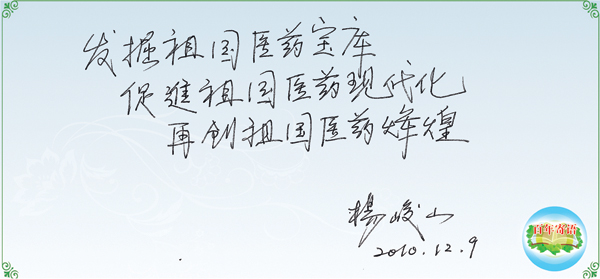 发掘祖国医药宝库
促進祖国医药现代化
再创祖国医药辉煌
楊峻山
2010.12.9
百年寄语